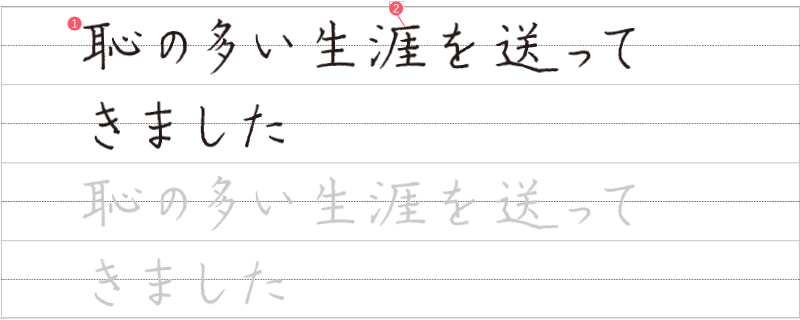 ① 恥の多い生涯を送って ②
きました
恥の多い生涯を送って
きました